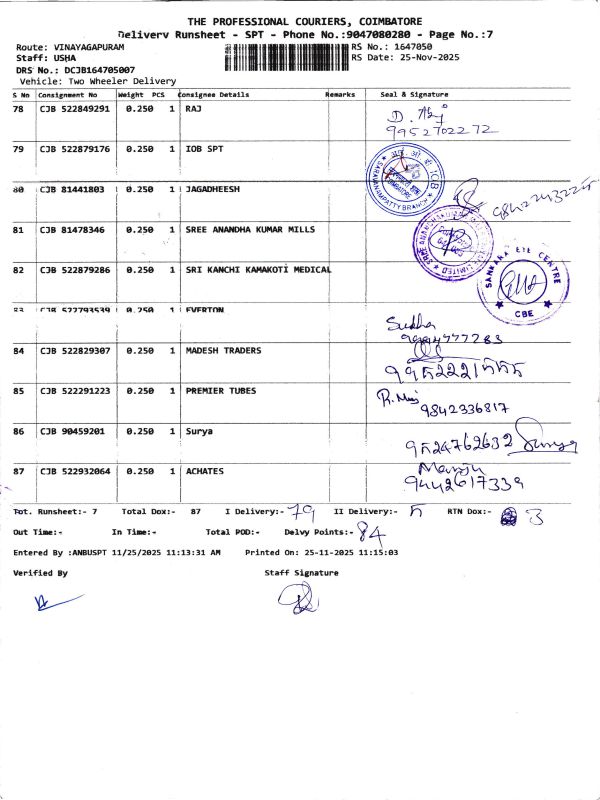 THE PROFESSIONAL COURIERS, COIMBATORE
Delivery Runsheet - SPT - Phone No.:9047080280 - Page No.:7
Route: VINAYAGAPURAM RS No.: 1647050
Staff: USHA RS Date: 25-Nov-2025
DRS No.: DCJB164705007
Vehicle: Two Wheeler Delivery
S No Consignment No Weight PCS Consignee Details Remarks Seal & Signature
78 CJB 522849291 0.250 1 RAJ
9952702272
79 CJB 522879176 0.250 1 IOB SPT
IOB SARAVANAMPATTY BRANCH
80 CJB 81441803 0.250 1 JAGADHEESH
81 CJB 81478346 0.250 1 SREE ANANDHA KUMAR MILLS
82 CJB 522879286 0.250 1 SRI KANCHI KAMAKOTI MEDICAL
SANKARA EYE CENTRE CBE
83 CJB 522793539 0.250 1 EVERTON
Sudha
84 CJB 522829307 0.250 1 MADESH TRADERS
85 CJB 522291223 0.250 1 PREMIER TUBES
9842336817
86 CJB 90459201 0.250 1 Surya
9524762632 Surya
87 CJB 522932064 0.250 1 ACHATES
Manju
9442617339
Tot. Runsheet:- 7 Total Dox:- 87 I Delivery:- 79 II Delivery:- 5 RTN Dox:- 3
Out Time:- In Time:- Total POD:- Delvy Points:- 84
Entered By :ANBUSPT 11/25/2025 11:13:31 AM Printed On: 25-11-2025 11:15:03
Verified By Staff Signature